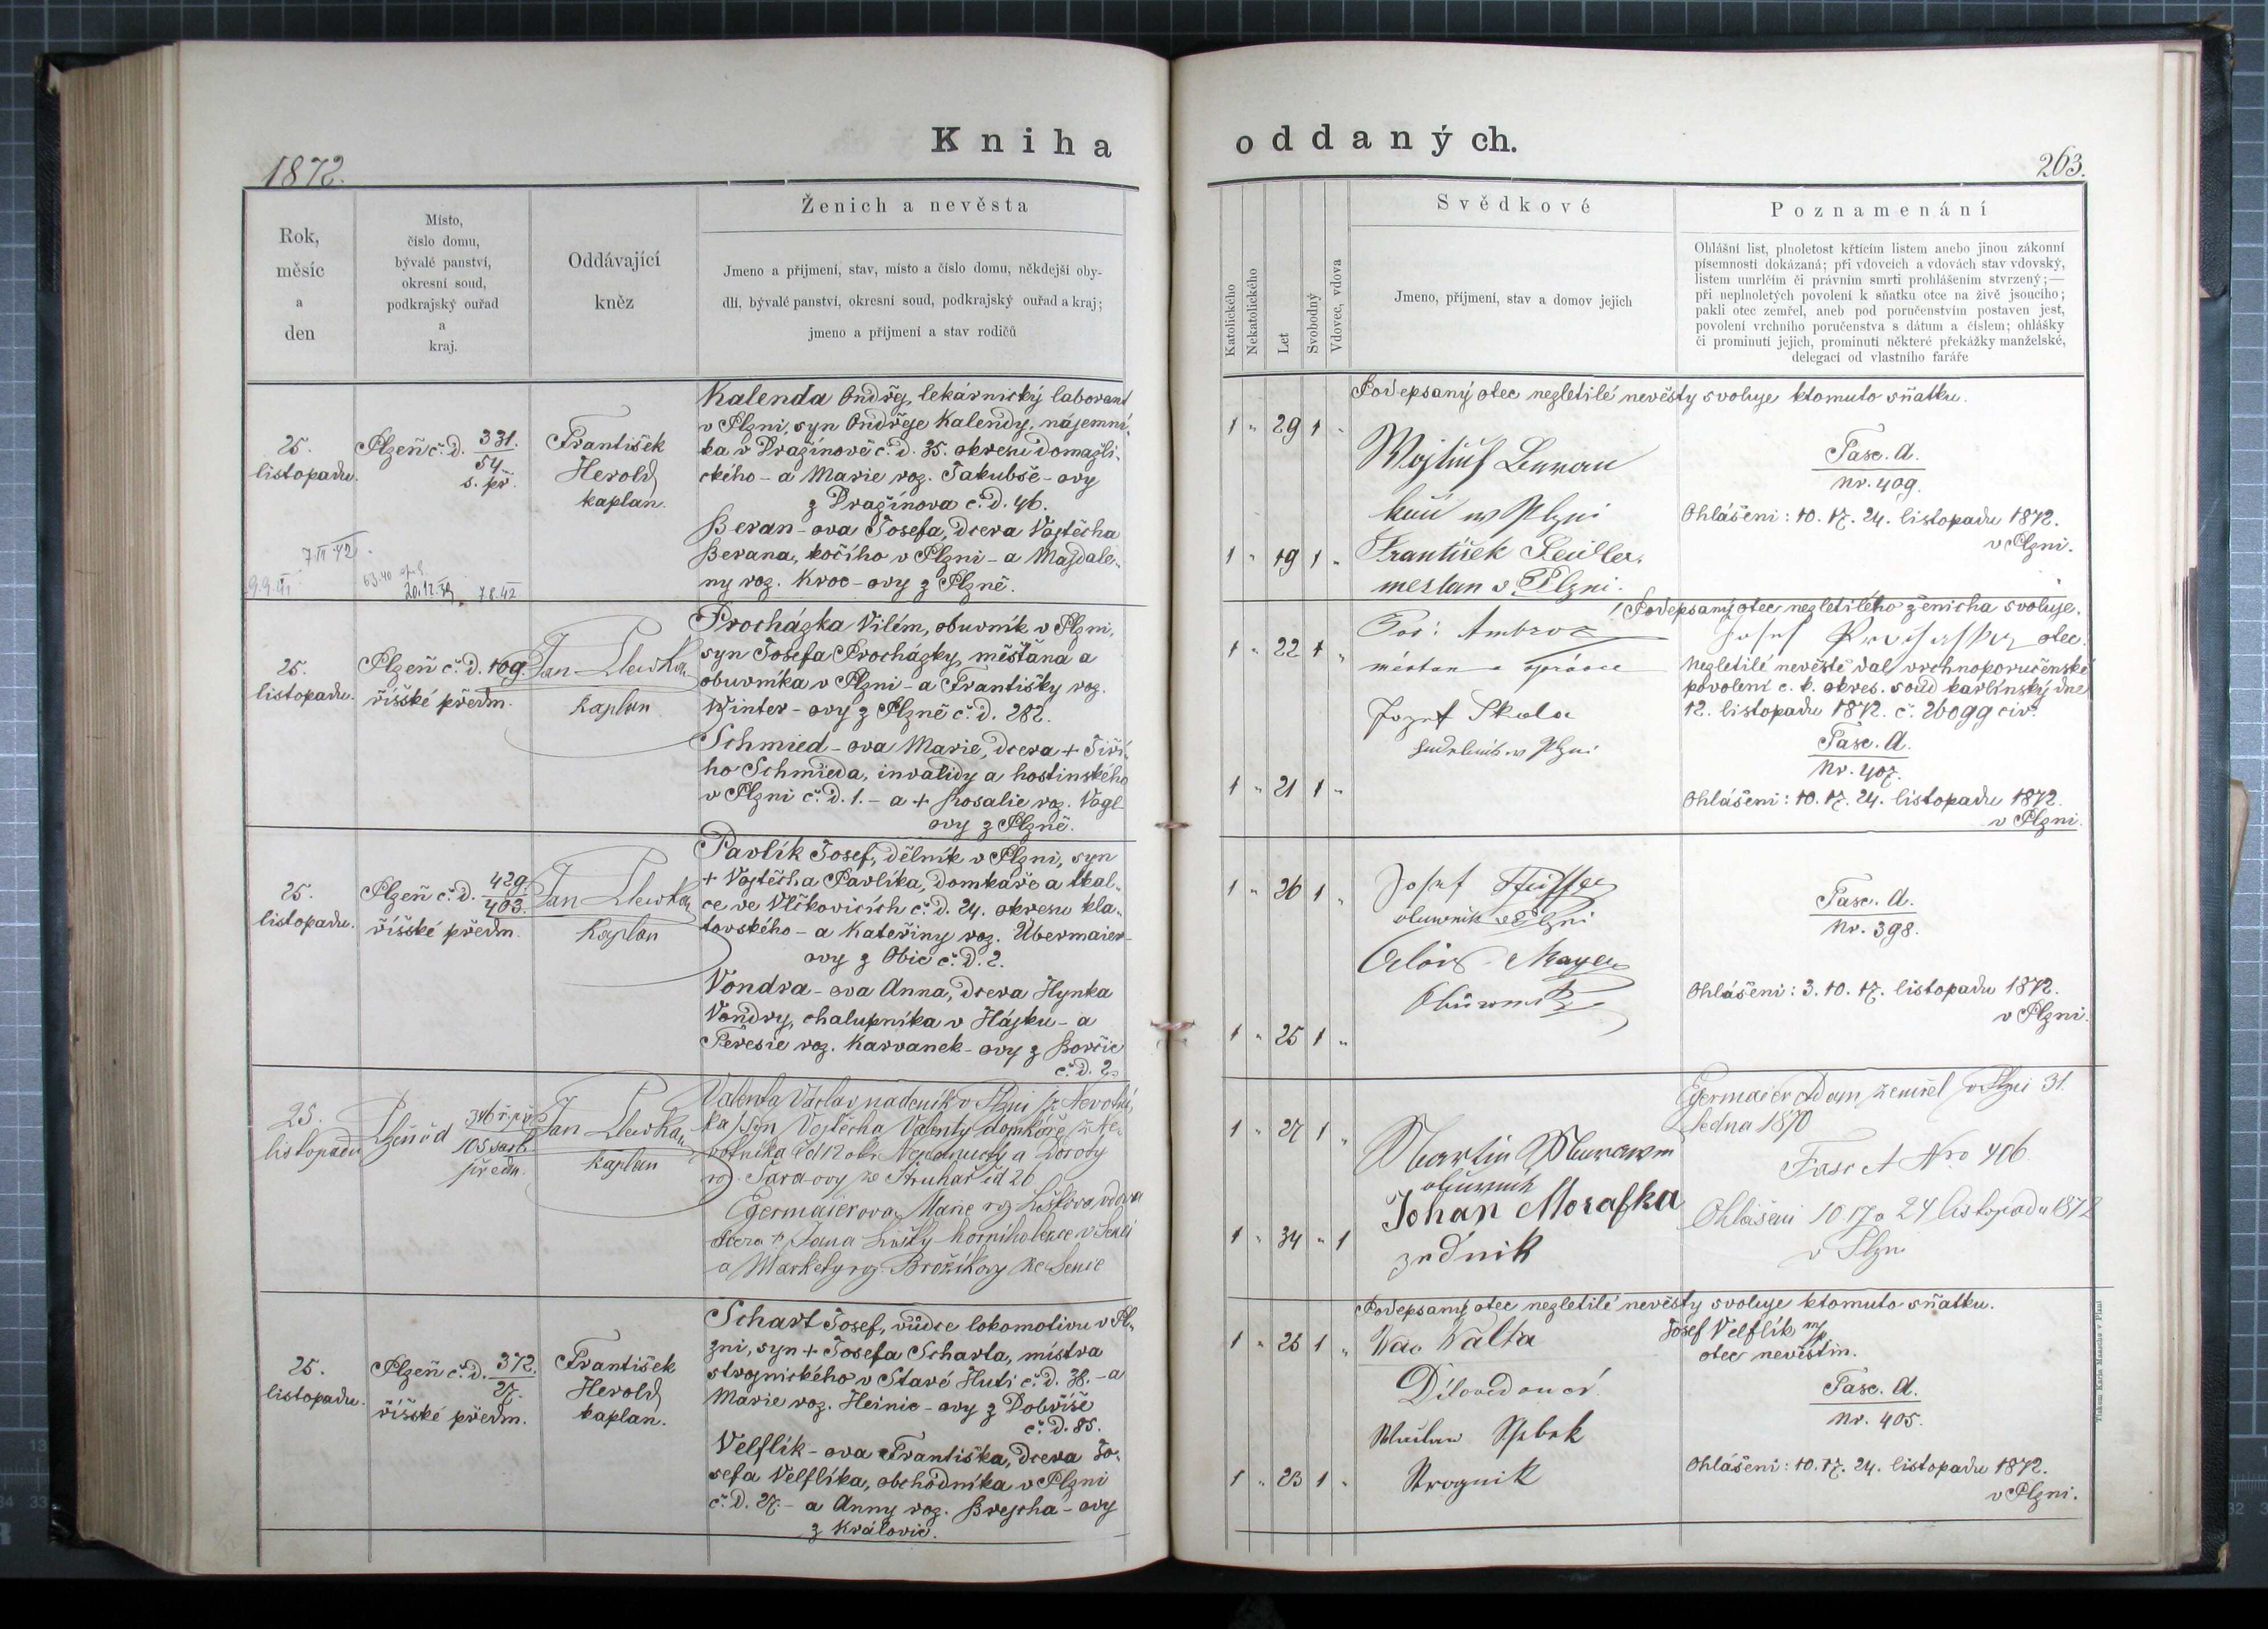 Kniha
oddaných.
1872.
263.
Rok,
měsíc
a
den
Místo,
číslo domu,
bývalé panství,
okresní soud,
podkrajský ouřad
a
kraj.
Oddávající
kněz
Ženich a nevěsta
Jmeno a příjmení, stav, místo a číslo domu, někdejší oby-
dlí, bývalé panství, okresní soud, podkrajský ouřad a kraj;
jmeno a příjmení a stav rodičů
Katolického
Nekatolického
Let
Svobodný
Vdovec, vdova
Svědkové
Jmeno, příjmení, stav a domov jejich
Poznamenání
Ohlášní list, plnoletost křtícím listem anebo jinou zákonní
písemností dokázaná; při vdovcích a vdovách stav vdovský,
listem umrlčím či právním smrti prohlášením stvrzený;—
při neplnoletých povolení k sňatku otce na živě jsoucího;
pakli otec zemřel, aneb pod poručenstvím postaven jest,
povolení vrchního poručenstva s dátum a číslem; ohlášky
či prominutí jejich, prominutí některé překážky manželské,
delegací od vlastního faráře
25.
listopadu.
Plzeň č. d. 331.
54.
s. př.
František
Herold
kaplan.
Kalenda Ondřej, lekárnický laborant
v Plzni, syn Ondřeje Kalendy, nájemní-
ka v Dražínově č. d. 35. okresu domažli-
ckého - a Marie roz. Jakubše - ovy
z Dražínova č. d. 46.
Beran - ova Josefa, dcera Vojtěcha
Berana, kočího v Plzni - a Majdale-
ny roz. Kroc - ovy z Plzně.
7.8.42
1 " 29 1 "
1 " 19 1 "
Podepsaný otec nezletilé nevěsty svoluje ktomuto sňatku.
w Plzni
František
mestan v Plzni.
Fasc. A.
Nr. 409.
Ohlášeni: 10. 17. 24. listopadu 1872.
v Plzni.
25.
listopadu.
Plzeň č. d. 109.
říšské předm.
Jan
Kaplan
Procházka Vilém, obuvník v Plzni,
syn Josefa Procházky, měšťana a
obuvníka v Plzni - a Františky roz.
Winter - ovy z Plzně č. d. 282.
Schmied - ova Marie, dcera + Jiří-
ho Schmieda, invalidy a hostinského
v Plzni č. d. 1. - a + Rosalie roz. Vogl-
ovy z Plzně.
1 " 22 1 "
1 " 21 1 "
Jos: Ambroz
městan a správce
Jozef Skala
w Plzni
Podepsaný otec nezletilého ženicha svoluje.
otec.
Nezletilé nevěstě dal vrchnoporučenské
povolení c. k. okres. soud karlínský dne
12. listopadu 1872. č. 26099 civ.
Fasc. A.
Nr. 407.
Ohlášeni: 10. 17. 24. listopadu 1872.
v Plzni.
25.
listopadu.
Plzeň č. d. 429.
403.
říšské předm.
Jan
Kaplan
Pavlík Josef, dělník v Plzni, syn
+ Vojtěcha Pavlíka, domkáře a tkal-
ce ve Vlčkovicích č. d. 24. okresu kla-
tovského - a Kateřiny roz. Übermaier-
ovy z Obic č. d. 2.
Vondra - ova Anna, dcera Hynka
Vondry, chalupníka v Hájku - a
Teresie roz. Karvanek - ovy z Borčic
č. d. 2.
1 " 26 1 "
1 " 25 1 "
Josef
obuwnik v Plzni
Alois Mayer
Obuwnik
Fasc. A.
Nr. 398.
Ohlášeni: 3. 10. 17. listopadu 1872.
v Plzni.
25.
listopadu
Plzeň čd 346 ř. př
105 sas
předm.
Jan
Kaplan
Valenta Václav nadeník v Plzni z Nevotní-
ka, syn Vojtěcha Valenty domkáře z Ne-
votníka čd 12 okr. Nepomucky a Doroty
roz. Šara-ovy ze Struhař čd 26
Egermaierova Marie roz Liškova, vdova
dcera + Jana Lišky horního v Senci
a Markety roz. Brožíkovy ze Sence
1 " 27 1 "
1 " 34 " 1
Martin
obuwnik
Johan Morafka
zednik
Egermaier Adam zemřel v Plzni 31.
ledna 1870
Fasc A Nro 406
Ohlášeni 10 17 a 24 listopadu 1872
v Plzni
25.
listopadu.
Plzeň č. d. 372.
27.
říšské předm.
František
Herold
kaplan.
Schart Josef, vůdce lokomotivu v Pl-
zni, syn + Josefa Scharta, místra
strojnického v Staré Huti č. d. 38. - a
Marie roz. Heinic - ovy z Dobříše
č. d. 85.
Velflík - ova Františka, dcera Jo-
sefa Velflíka, obchodníka v Plzni
č. d. 27. - a Anny roz. Brejcha - ovy
z Kralovic.
1 " 25 1 "
1 " 23 1 "
Podepsaný otec nezletilé nevěsty svoluje ktomuto sňatku.
Josef Velflík m/p
otec nevěstin.
Wac Walta
Dílovedoucí.
Strognik
Fasc. A.
Nr. 405.
Ohlášeni: 10. 17. 24. listopadu 1872.
v Plzni.
Tiskem Karla Maasche v Plzni